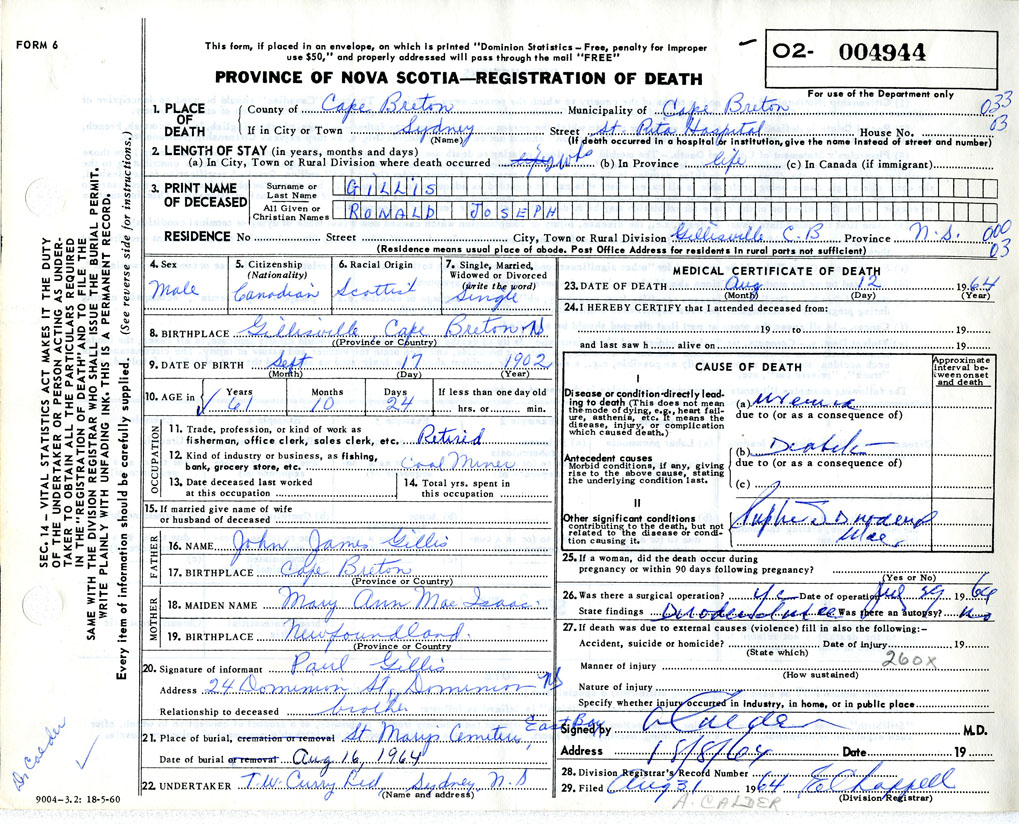 FORM 6
This form, if placed in an envelope, on which is printed "Dominion Statistics – Free, penalty for improper
use $50," and properly addressed will pass through the mail "FREE"
02- 004944
For use of the Department only
PROVINCE OF NOVA SCOTIA—REGISTRATION OF DEATH
SEC. 14 – VITAL STATISTICS ACT, MAKES IT THE DUTY
OF THE UNDERTAKER OR PERSON ACTING AS UNDER-
TAKER TO OBTAIN ALL THE PARTICULARS REQUIRED
IN THE "REGISTRATION OF DEATH" AND TO FILE THE
SAME WITH THE DIVISION REGISTRAR WHO SHALL ISSUE THE BURIAL PERMIT.
WRITE PLAINLY WITH UNFADING INK. THIS IS A PERMANENT RECORD.
Every item of information should be carefully supplied. (See reverse side for instructions.)
1. PLACE OF DEATH
County of Cape Breton Municipality of Cape Breton 033
03
If in City or Town Sydney Street St. Rita Hospital House No.
(Name) (If death occurred in a hospital or institution, give the name instead of street and number)
2. LENGTH OF STAY (in years, months and days)
(a) In City, Town or Rural Division where death occurred 2 wks (b) In Province life (c) In Canada (if immigrant)
3. PRINT NAME OF DECEASED
Surname or Last Name GILLIS
All Given or Christian Names RONALD JOSEPH
RESIDENCE No Street City, Town or Rural Division Gillisville C.B Province N.S. 000
03
(Residence means usual place of abode. Post Office Address for residents in rural parts not sufficient)
4. Sex Male
5. Citizenship (Nationality) Canadian
6. Racial Origin Scottish
7. Single, Married, Widowed or Divorced (write the word) Single
8. BIRTHPLACE Gillisville Cape Breton NS
(Province or Country)
9. DATE OF BIRTH Sept 17 1902
(Month) (Day) (Year)
10. AGE in Years 61 Months 10 Days 24 If less than one day old hrs. or min.
OCCUPATION
11. Trade, profession, or kind of work as fisherman, office clerk, sales clerk, etc. Retired
12. Kind of industry or business, as fishing, bank, grocery store, etc. Coal Miner
13. Date deceased last worked at this occupation
14. Total yrs. spent in this occupation
15. If married give name of wife or husband of deceased
FATHER
16. NAME John James Gillis
17. BIRTHPLACE Cape Breton
(Province or Country)
MOTHER
18. MAIDEN NAME Mary Ann Mac Isaac.
19. BIRTHPLACE Newfoundland.
(Province or Country)
20. Signature of informant Paul Gillis
Address 24 Dominion St, Dominion NS
Relationship to deceased brother
21. Place of burial, cremation or removal St Marys Cemetery, East Bay
Date of burial or removal Aug 16, 1964
22. UNDERTAKER T.W. Curry Ltd Sydney N.S
(Name and address)
9004–3.2: 18-5-60
Dr Calder
MEDICAL CERTIFICATE OF DEATH
23. DATE OF DEATH Aug 12 1964
(Month) (Day) (Year)
24. I HEREBY CERTIFY that I attended deceased from:
19 to 19
and last saw h alive on 19
CAUSE OF DEATH
Approximate interval between onset and death
I
Disease or condition directly leading to death (This does not mean the mode of dying, e.g., heart failure, asthenia, etc. It means the disease, injury, or complication which caused death.)
(a) Uremia
due to (or as a consequence of)
Antecedent causes
Morbid conditions, if any, giving rise to the above cause, stating the underlying condition last.
(b) Diabetes
due to (or as a consequence of)
(c)
II
Other significant conditions contributing to the death, but not related to the disease or condition causing it.
Duodenal Ulcer
25. If a woman, did the death occur during pregnancy or within 90 days following pregnancy?
(Yes or No)
26. Was there a surgical operation? yes Date of operation Jul 29 1964
State findings Was there an autopsy? no
27. If death was due to external causes (violence) fill in also the following:–
Accident, suicide or homicide? Date of injury 19
(State which)
260x
Manner of injury
(How sustained)
Nature of injury
Specify whether injury occurred in industry, in home, or in public place
Signed by A Calder M.D.
Address 18/8/64 Date 19
28. Division Registrar's Record Number
29. Filed Aug 31 1964 E Chappell
(Division Registrar)
A. CALDER